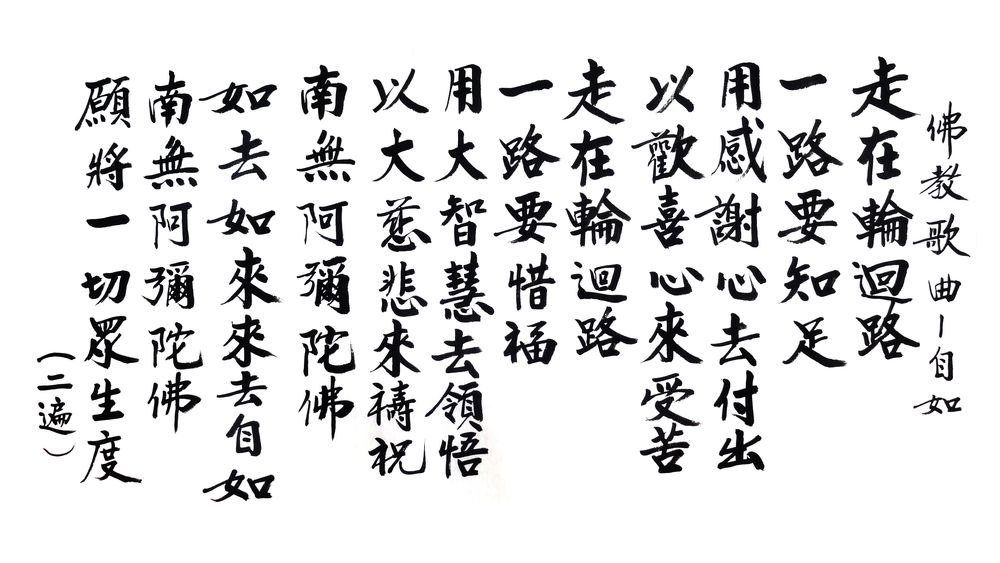 佛教歌曲－自如
走在輪迴路
一路要知足
用感謝心去付出
以歡喜心來受苦
走在輪迴路
一路要惜福
用大智慧去領悟
以大慈悲來禱祝
南無阿彌陀佛
如去如來來去自如
南無阿彌陀佛
願將一切眾生度
（二遍）